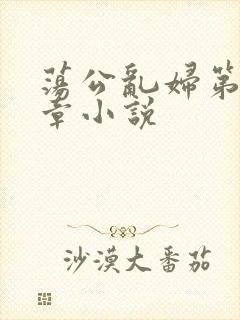 蕩公亂婦第
章小說
沙漠大番茄